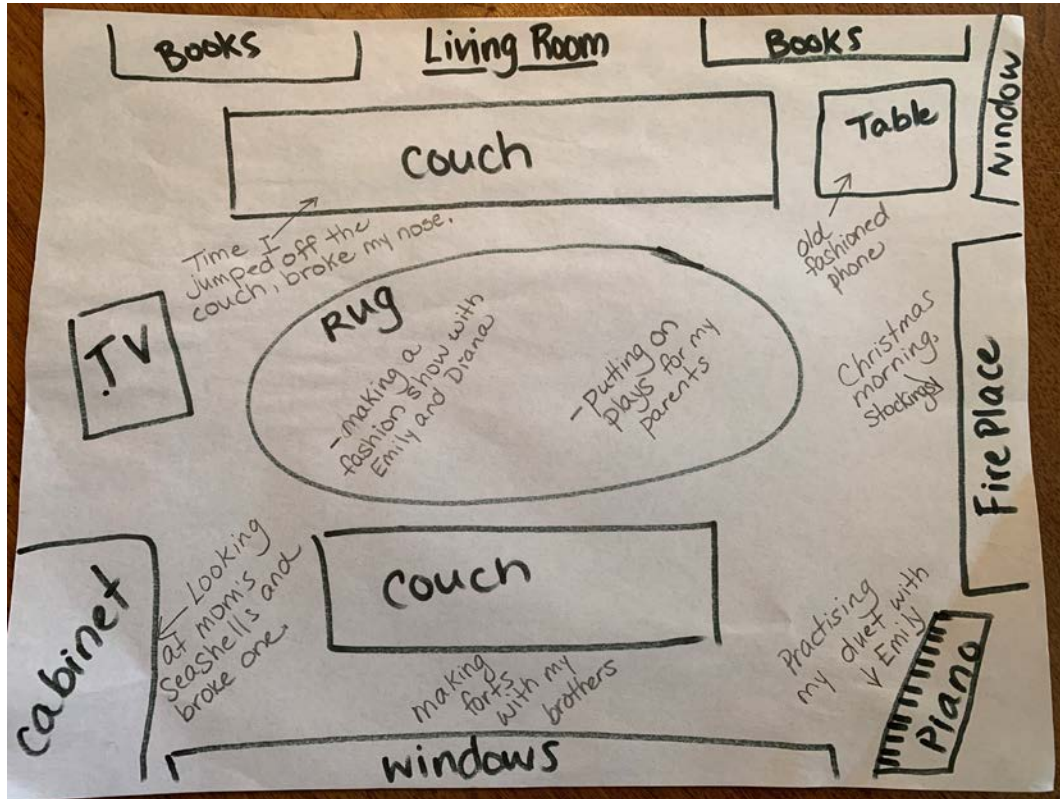 Books
Living Room
Books
Window
Couch
Table
Time I
jumped off the
couch, broke my nose.
old
fashioned
phone
TV
Rug
-making a
fashion show with
Emily and Diana
-Putting on
plays for my
parents
Christmas
morning.
Stockings
Fire Place
Cabinet
Looking
at mom's
Seashells and
broke one.
Couch
making
forts
with my
brothers
Practising
my duet with
Emily
Piano
Windows